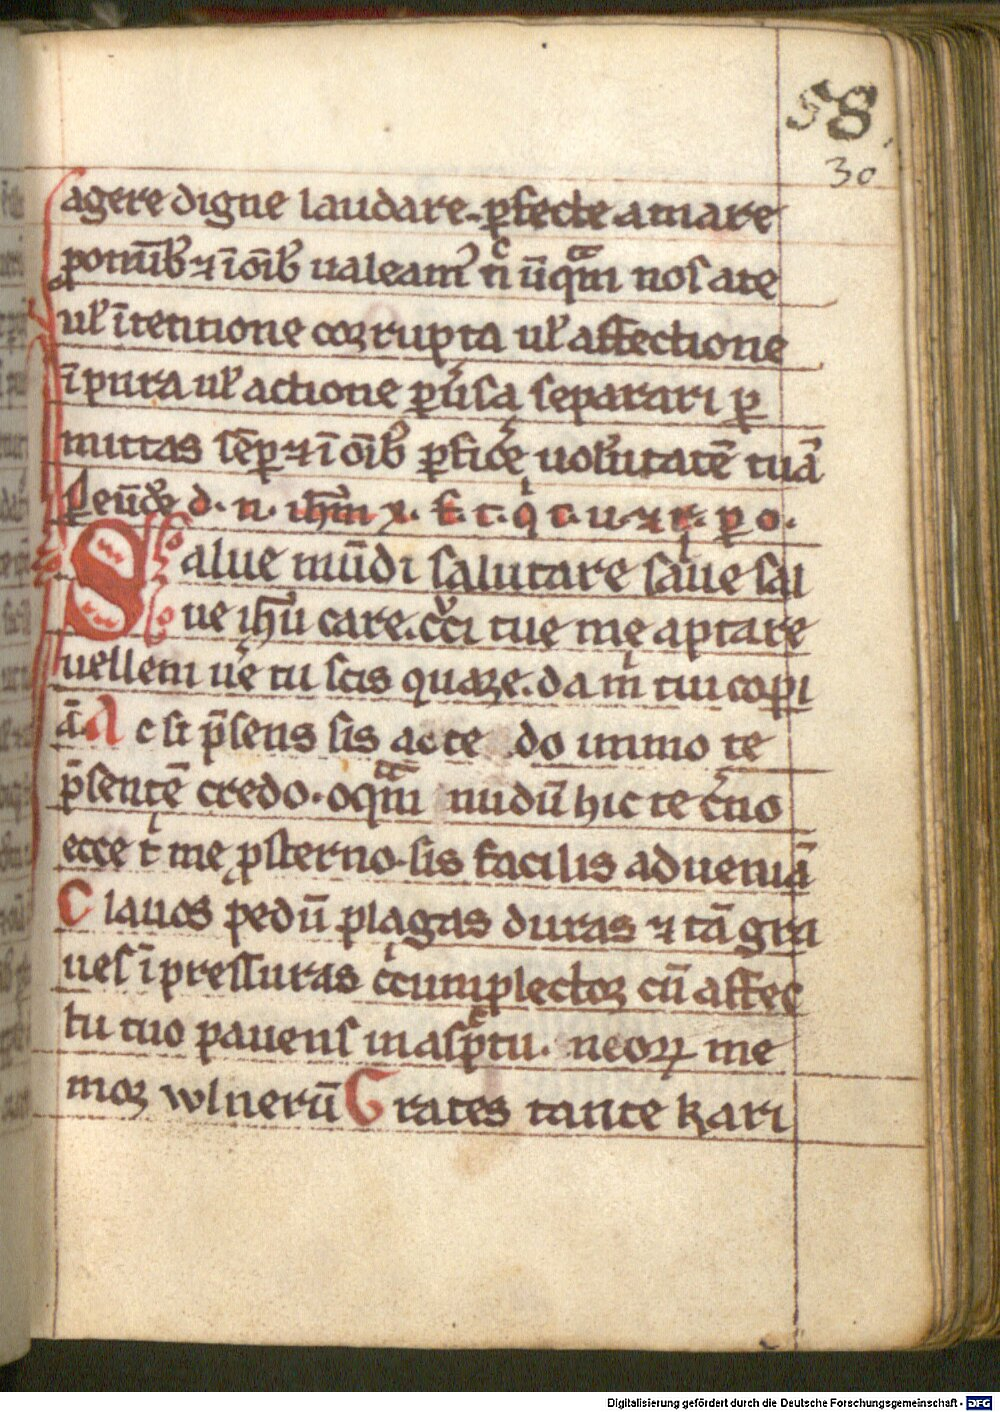 58.
30
agere digne laudare. ꝑfecte amare
p̄ omīb⁊ ī oīb ualeam᷒ nͨ ūqᷓm nos a te
ul̓ ītentione coꝛrupta ul̓ affectione
īpura ul̓ actione ꝑuͥsa separari ꝑ
mittas sēꝑ ⁊ ī oīb ꝑficͥe uolūtatē tuā
d. n. ih̄m x. f. t. qͥ t. u. ⁊ r. ꝑ o.
Salue mūdi salutare salue sal
ue ih̄u care. cͬci tue me aptare
uellem ue᷑ tu scis quaꝛe. da mͥ tui copi
ā. Ac si p̄sens sis ac te do immo te
p̄sentē credo. o qᷓm nudū hic te cͤno
ecce tͥ me ꝓsterno. sis facilis ad ueniā
Clauos pedū plagas duras ⁊ tā gra
ues īpressuras cͥcumplectoꝛ cū affec
tu tuo pauens in aspͨtu. neoꝝ me
moꝛ wlnerū Grates tante kari
Digitalisierung gefördert durch die Deutsche Forschungsgemeinschaft - DFG